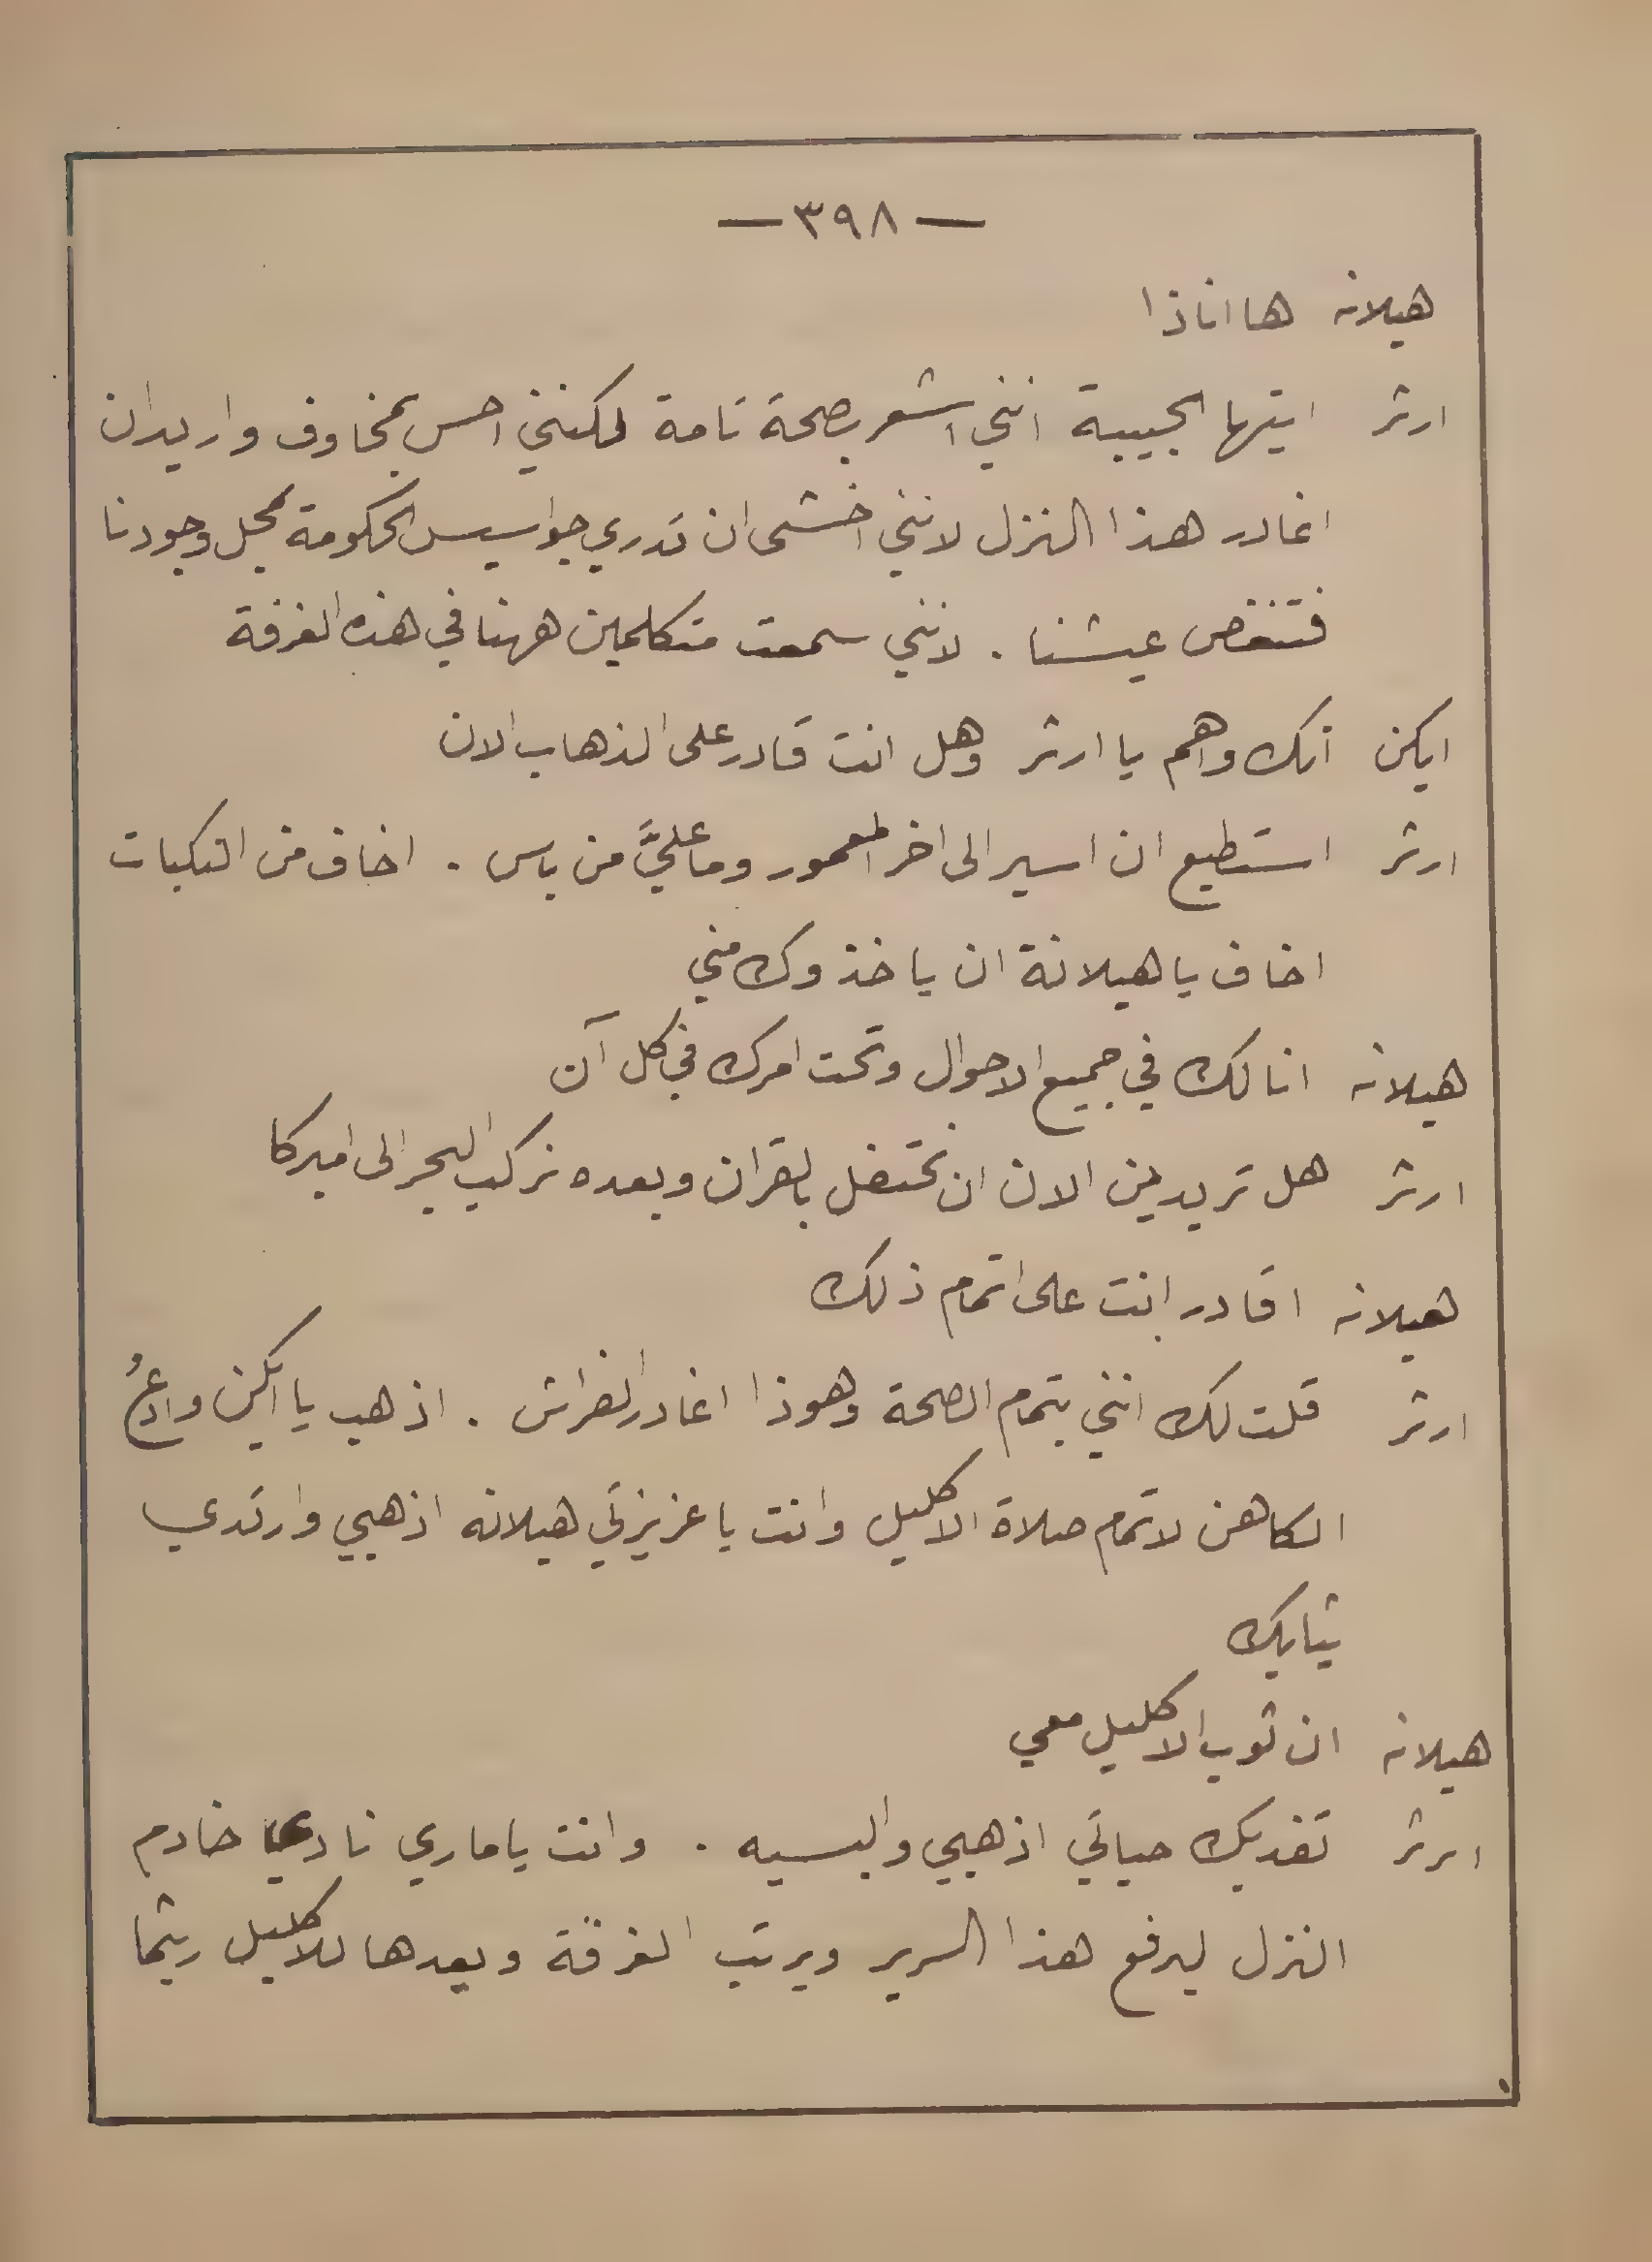 — ٣٩٨ —
هيلانه هاانذا
ارثر ايتها الحبيبة انني اشعر بصحة تامة لكنني احس بمخاوف واريد ان
اغادر هذا النزل لانني اخشى ان تدري جواسيس الحكومة بمحل وجودنا
فتنغص عيشنا . لانني سمعت متكلمين ههنا في هذه الغرفة
ايكن انك واهم يا ارثر وهل انت قادر على الذهاب الان
ارثر استطيع ان اسير الى اخر المعمور وما عليَّ من باس . اخاف من النكبات
اخاف يا هيلانة ان ياخذوك مني
هيلانه انا لك في جميع الاحوال وتحت امرك في كل آن
ارثر هل تريدين الان ان نحتفل بالقران وبعده نركب البحر الى اميركا
هيلانه اقادر انت على اتمام ذلك
ارثر قلت لك انني بتمام الصحة وهوذا اغادر الفراش . اذهب يا ايكن وادعُ
الكاهن لاتمام صلاة الاكليل وانت يا عزيزتي هيلانه اذهبي وارتدي
ثيابك
هيلانه ان ثوب الاكليل معي
ارثر تفديك حياتي اذهبي والبسيه . وانت يا ماري نادي خادم
النزل ليرفع هذا السرير ويرتب الغرفة ويعدها للاكليل ريثما